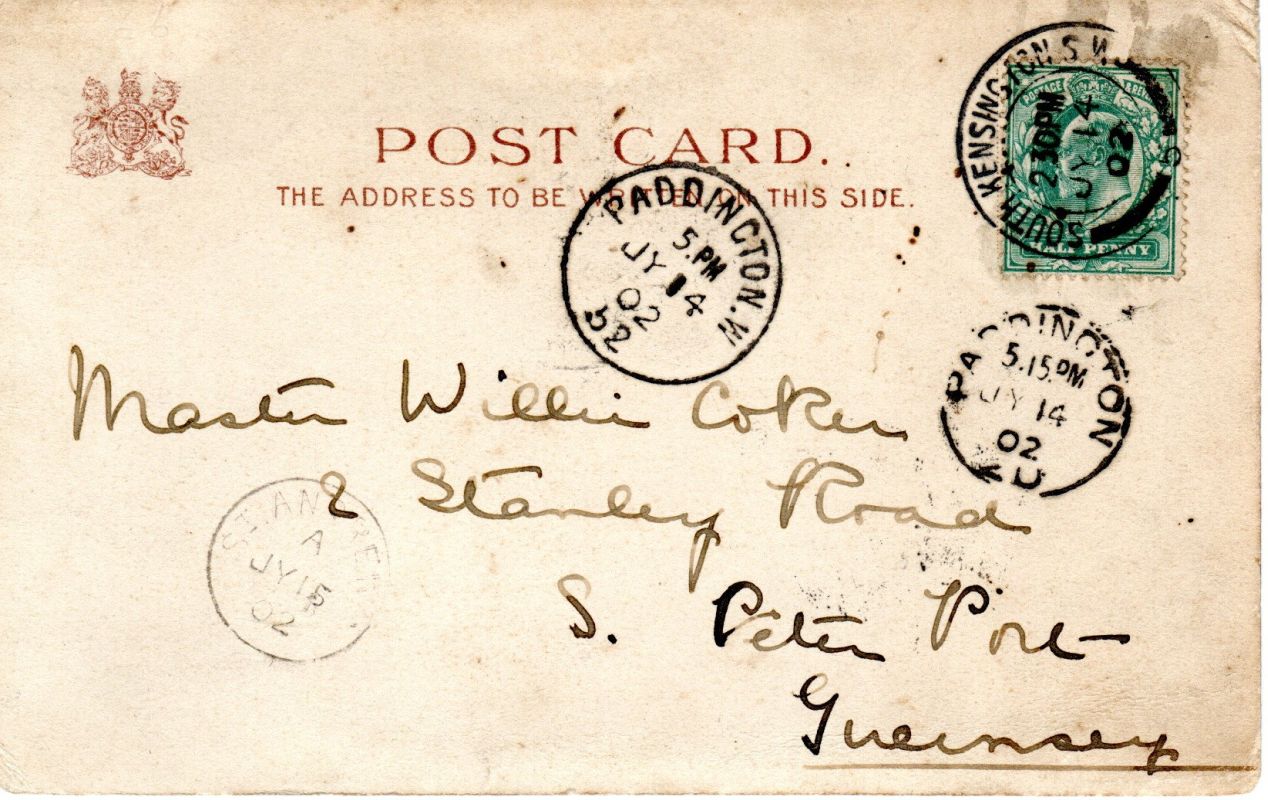 POST CARD.
THE ADDRESS TO BE WRITTEN ON THIS SIDE.
SOUTH KENSINGTON S.W.
2 30 PM
JY 14
02
5
POSTAGE & REVENUE
HALF PENNY
PADDINGTON.W
5.PM
JY 14
02
52
PADDINGTON
5.15.PM
JY 14
02
Master Willie Coker
2 Stanley Road
S. Peter Port
Guernsey
ST ANDREW
A
JY 15
02